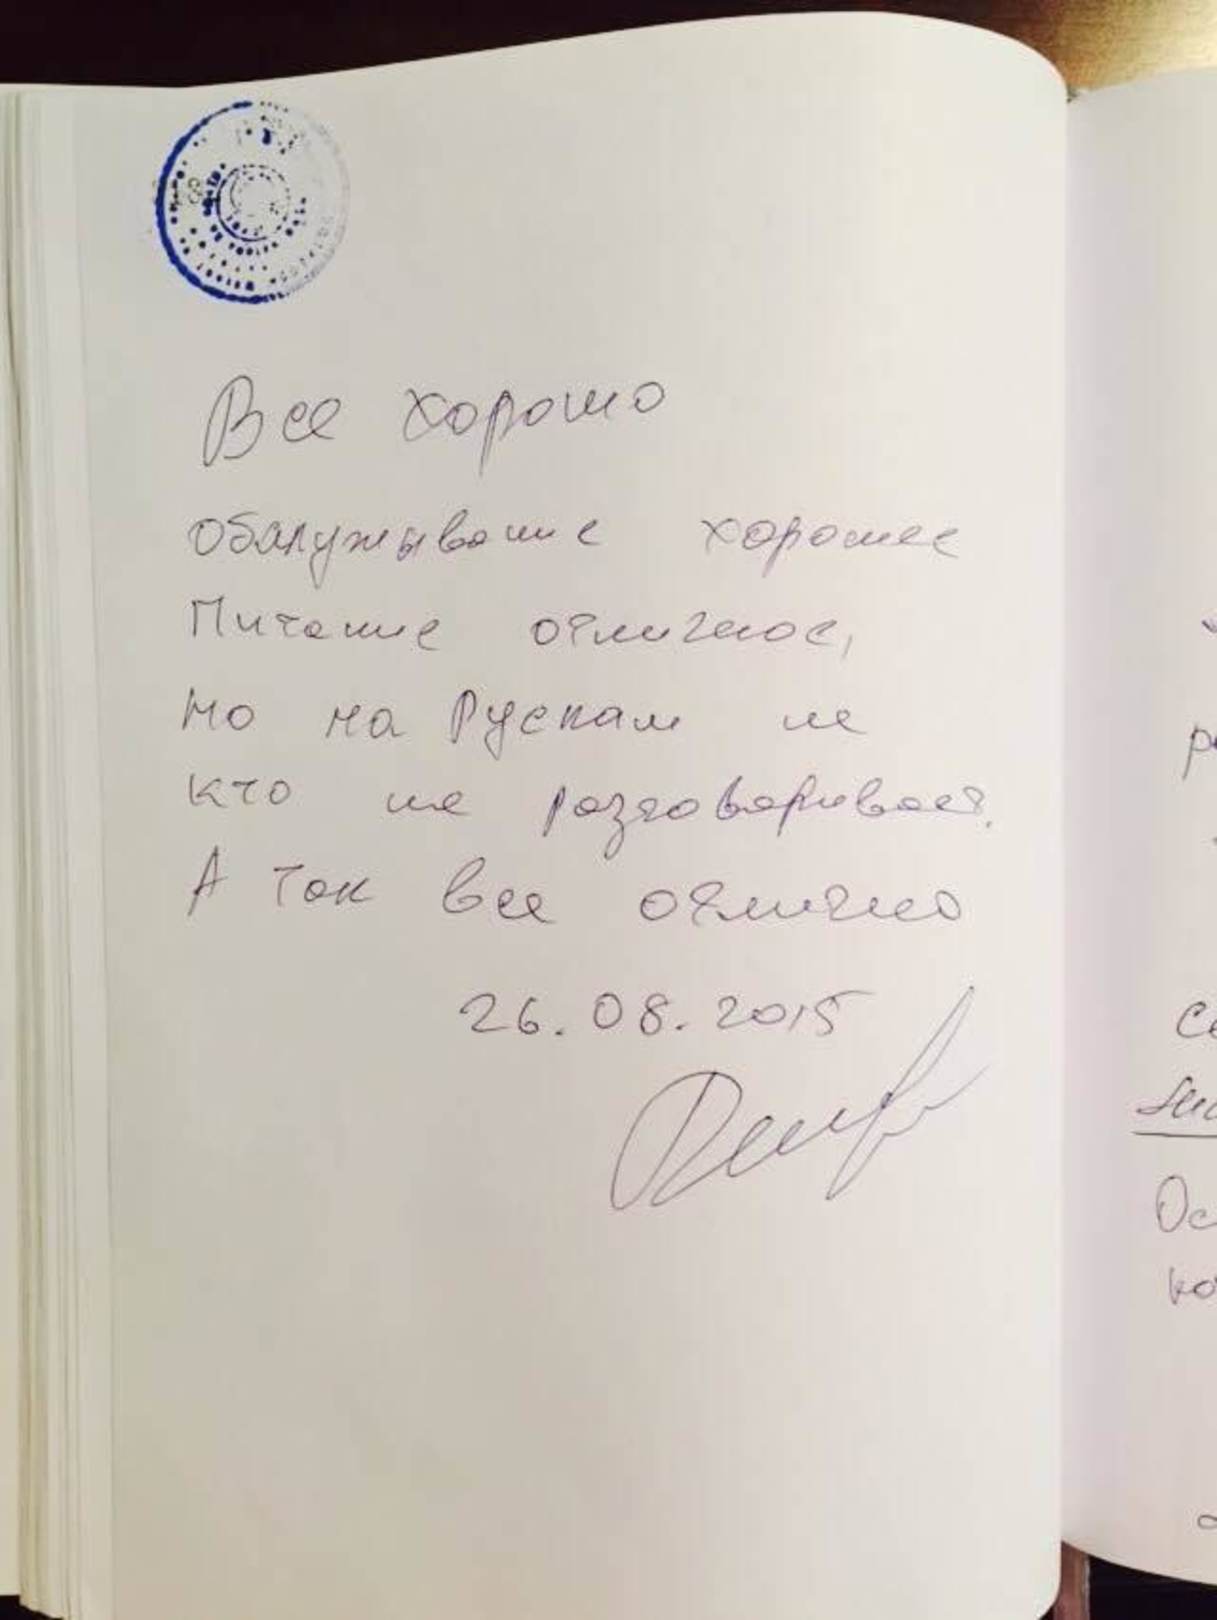 Все хорошо
обслуживание хорошее
Питание отличное,
но на Рускам не
кто не разговаривает.
А так все отлично
26.08.2015